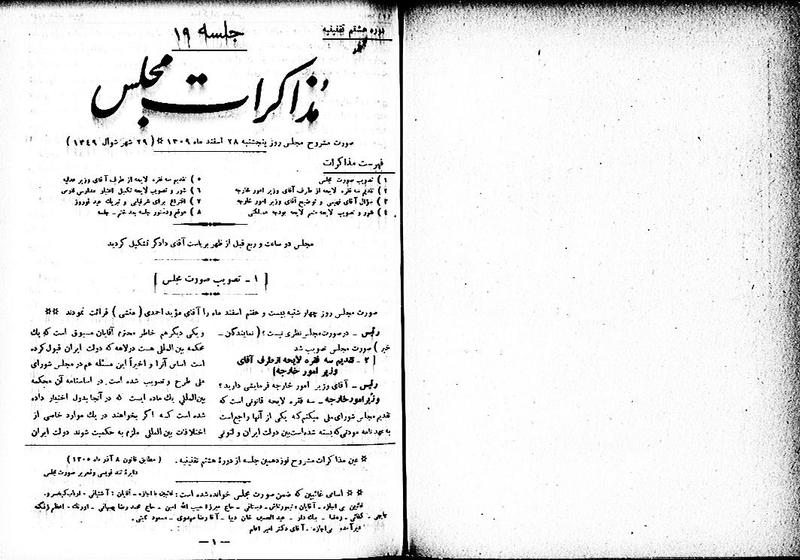 دوره هشتم تقنینیه
جلسه ۱۹
مذاکرات مجلس
صورت مشروح مجلس روز پنجشنبه ۲۸ اسفند ماه ۱۳۰۹ ※ (۲۹ شهر شوال ۱۳۴۹)
فهرست مذاکرات
۱) تصویب صورت مجلس
۲) تقدیم سه فقره لایحه از طرف آقای وزیر امور خارجه
۳) سؤال آقای فهیمی و توضیح آقای وزیر امور خارجه
۴) شور و تصویب لایحه متمم لایحه بودجه مملکتی
۵) تقدیم سه فقره لایحه از طرف آقای وزیر عدلیه
۶) شور و تصویب لایحه تکمیل اعتبار مدارس فارس
۷) اقتراع برای شرفیابی و تبریک عید نوروز
۸) موقع و دستور جلسه بعد ختم - جلسه
مجلس دو ساعت و ربع قبل از ظهر بریاست آقای دادگر تشکیل گردید
[ ۱ - تصویب صورت مجلس ]
صورت مجلس روز چهار شنبه بیست و هفتم اسفند ماه را آقای مؤید احمدی (منشی) قرائت نمودند ※※
رئیس - در صورت مجلس نظری نیست؟ (نمایندگان -
خیر) صورت مجلس تصویب شد
[ ۲ - تقدیم سه فقره لایحه از طرف آقای
وزیر امور خارجه]
رئیس - آقای وزیر امور خارجه فرمایشی دارید؟
وزیر امور خارجه - سه فقره لایحه قانونی است که
تقدیم مجلس شورای ملی میکنم که یکی از آنها راجع است
به عهدنامه مودتی که بسته شده است بین دولت ایران و لتونی
و یکی دیگر هم خاطر محترم آقایان مسبوق است که یك
محکمه بین المللی هست در لاهه که دولت ایران قبول کرده
است اساس آنرا و اخیراً این مسئله هم در مجلس شورای
ملی طرح و تصویب شده است. در اساسنامه آن محکمه
بین المللی یك ماده ایست که در آنجا بدول اختیار داده
شده است که اگر بخواهند در یك موارد خاصی از
اختلافات بین المللی ملزم به حکمیت شوند دولت ایران
※ عین مذاکرات مشروح نوزدهمین جلسه از دورهٔ هشتم تقنینیه. (مطابق قانون ۸ آذر ماه ۱۳۰۵)
دایرهٔ تند نویسی و تحریر صورت مجلس
※※ اسامی غائبین که ضمن صورت مجلس خوانده شده است: غائبین با اجازه - آقایان: آشتیانی -
غائبین بی اجازه - آقایان: تیمورتاش - دبستانی - حاج میرزا حبیب الله امین - حاج محمد رضا بهبهانی - اورنك - اعظم زنگنه
- عبدالحسین خان دیبا - آقا رضا مهدوی - مسعود ثابتی.
دیر آمده بی اجازه - آقای دکتر امیر اعلم
— ۱ —